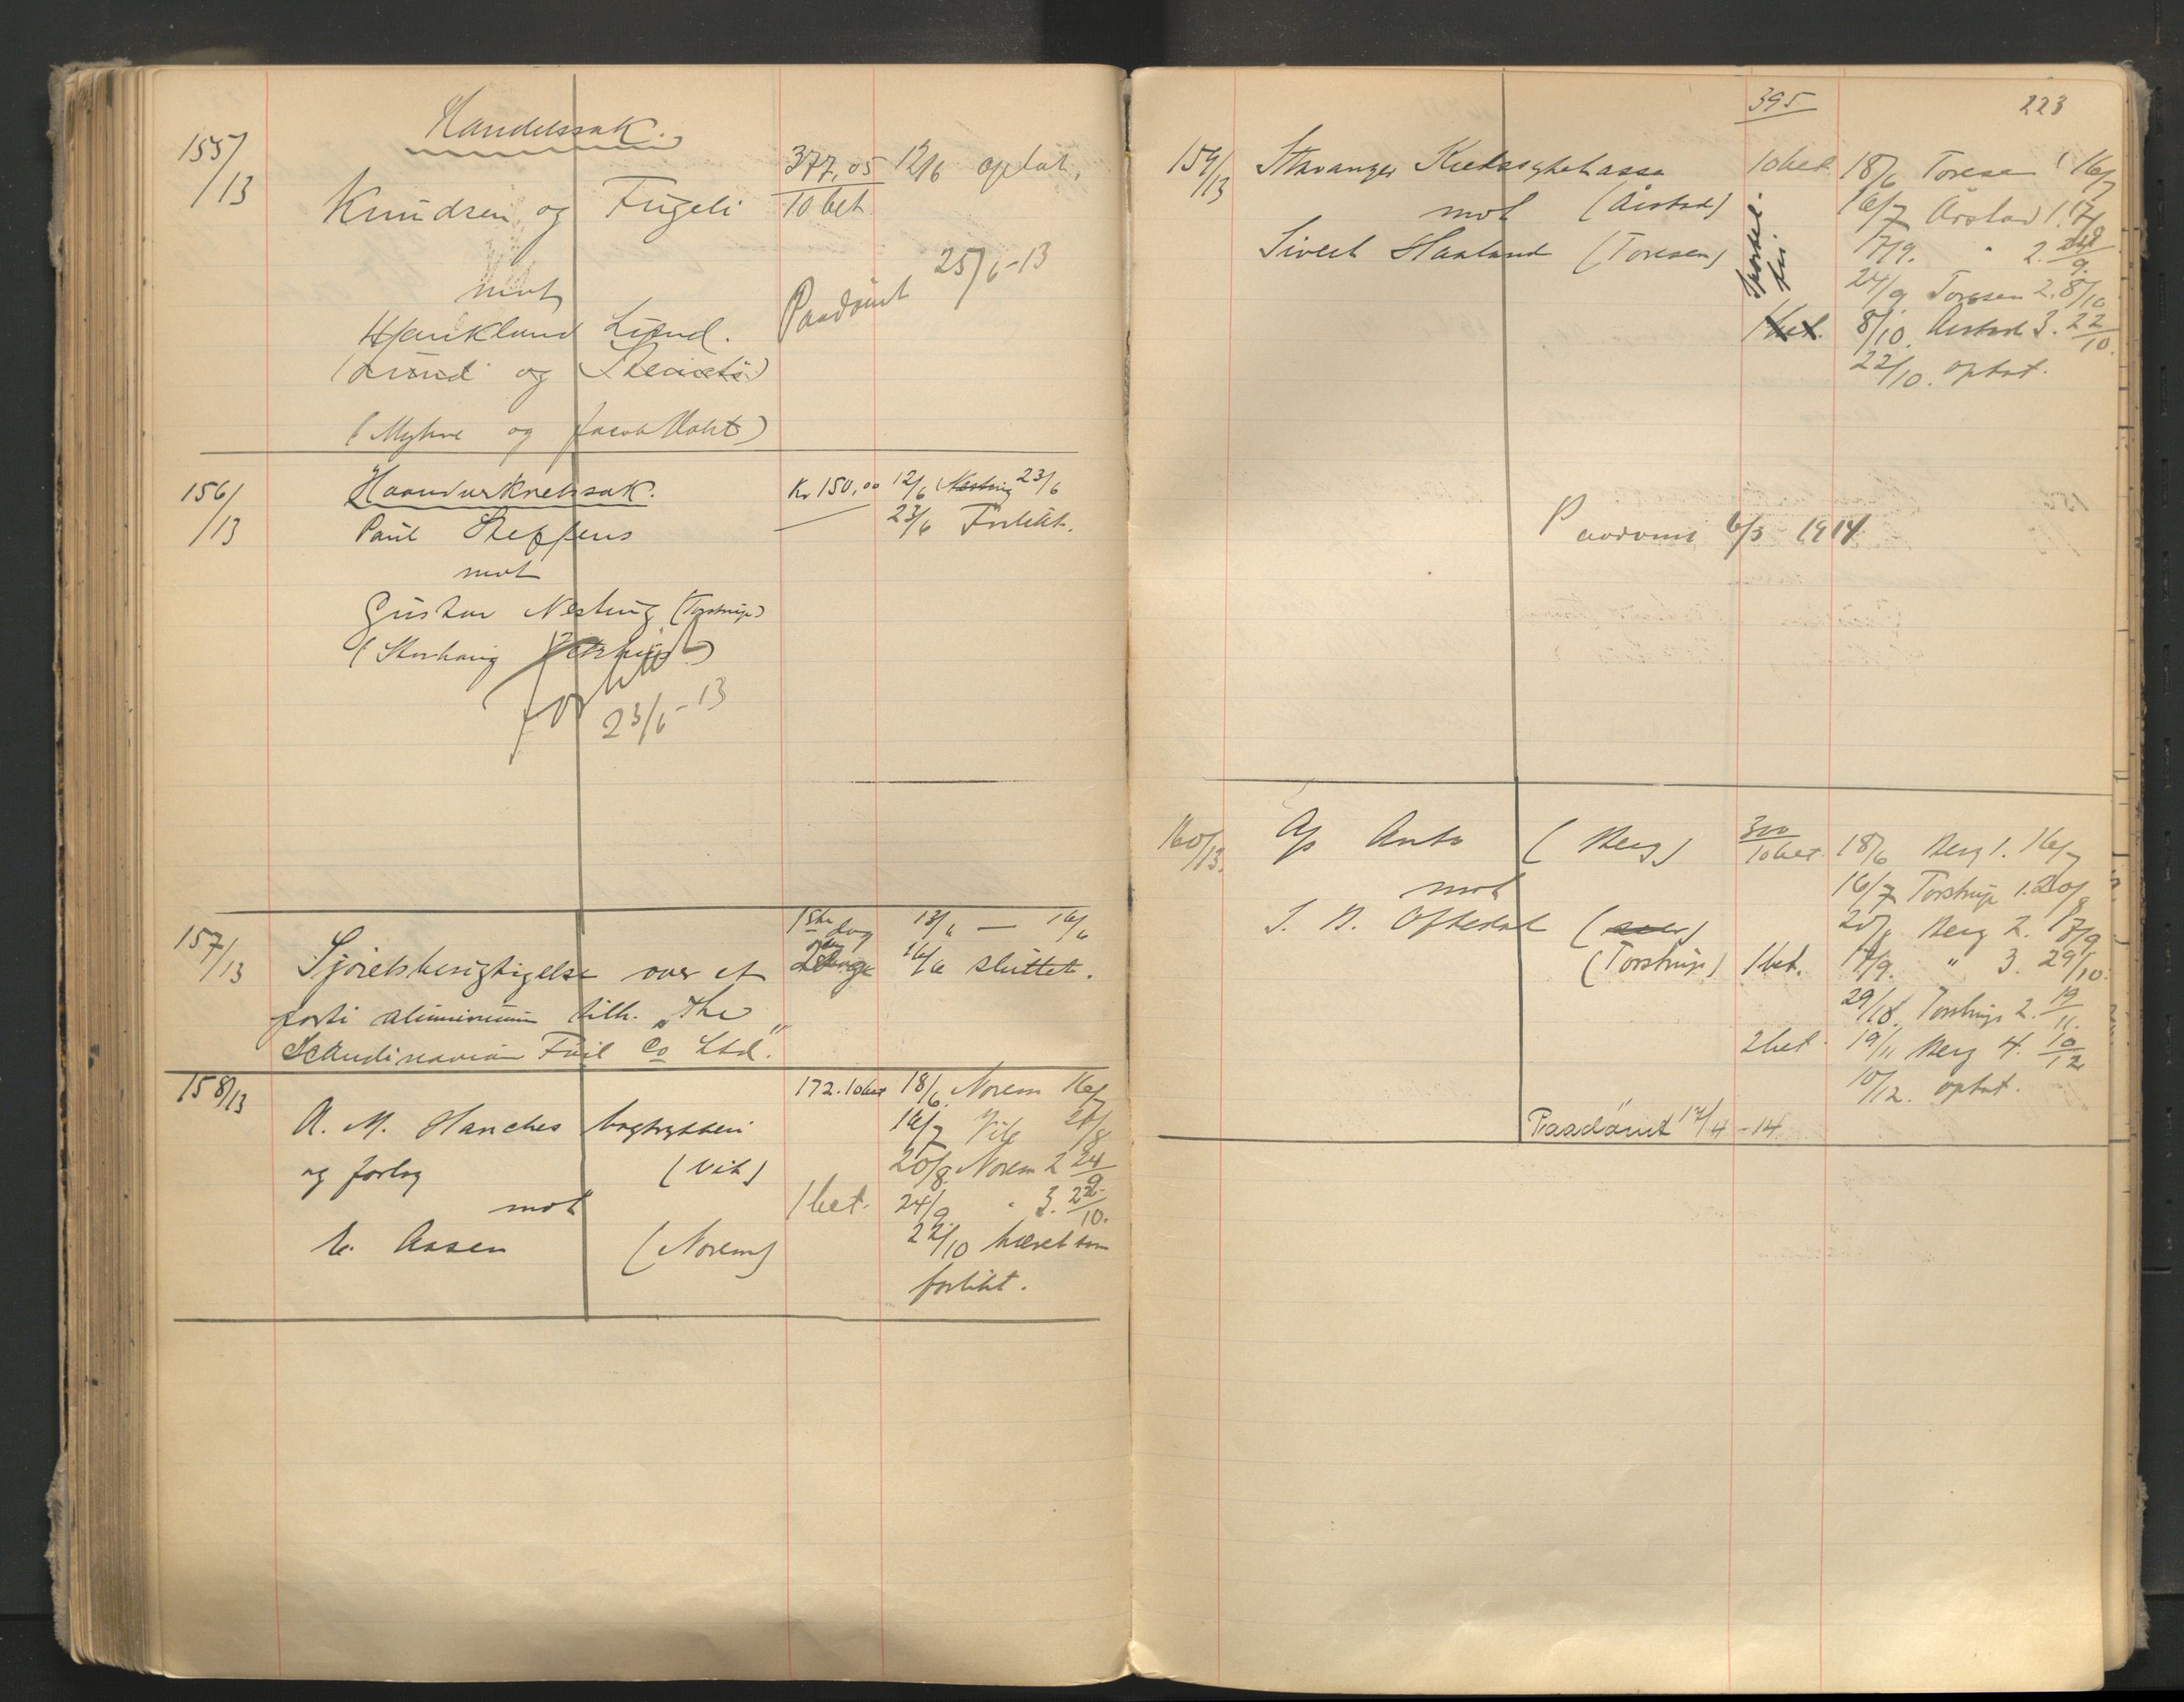 Handelssak.
155/13
377,05 12/6 optat.
Knudsen og Fugeli 10 bet
25/6-13
mot
Paadømt
Haukland Lund.
(Lund og
(Myhre og Jacob Valdt)
156/13 Haandverkretssak. Kr 150,00 12/6 Nestung 23/6
Paul Steffens 23/6 Forlikt.
mot
Gustav Nestung (Torstrup)
(Storhaug
forlikt
23/6-13
157/13 13/6 — 16/6
Sjøretsbesigtigelse over et 16/6 sluttet.
parti aluminium tilh. "The
Scandinavian Foil Co Ltd".
158/13 172. 10 bet 18/6 Norem 16/7
A. M. Hanches bogtrykkeri 16/7 Vik 20/8
og forlag (Vik) 20/8 Norem 2 24/9
mot 1 bet. 24/9 " 3. 22/10.
E. Aasen (Norem) 22/10 hævet som
forlikt.
395 223
159/13 Stavanger Kretssykekasse 10 bet. 18/6 Toresen 1 16/7
mot (Årstad) 16/7 Årstad 1. 17/9
Sivert Haaland (Toresen) 17/9. " 2. 24/9.
Sportel
fri
24/9 Toresen 2. 8/10
1 bet. 8/10. Aarstad 3. 22/10.
22/10. optat.
Paadømt 6/3 1914
160/13. A/s Auto (Berg) 300 10 bet. 18/6 Berg 1. 16/7
mot 16/7 Torstrup 1. 20/8
S. B. Oftedal 20/8 Berg 2. 17/9
(Torstrup) 1 bet. 17/9. " 3. 29/10.
29/10. Torstrup 2. 19/11.
2 bet. 19/11 Berg 4. 10/12
10/12. optat.
Paadømt 17/4 -14